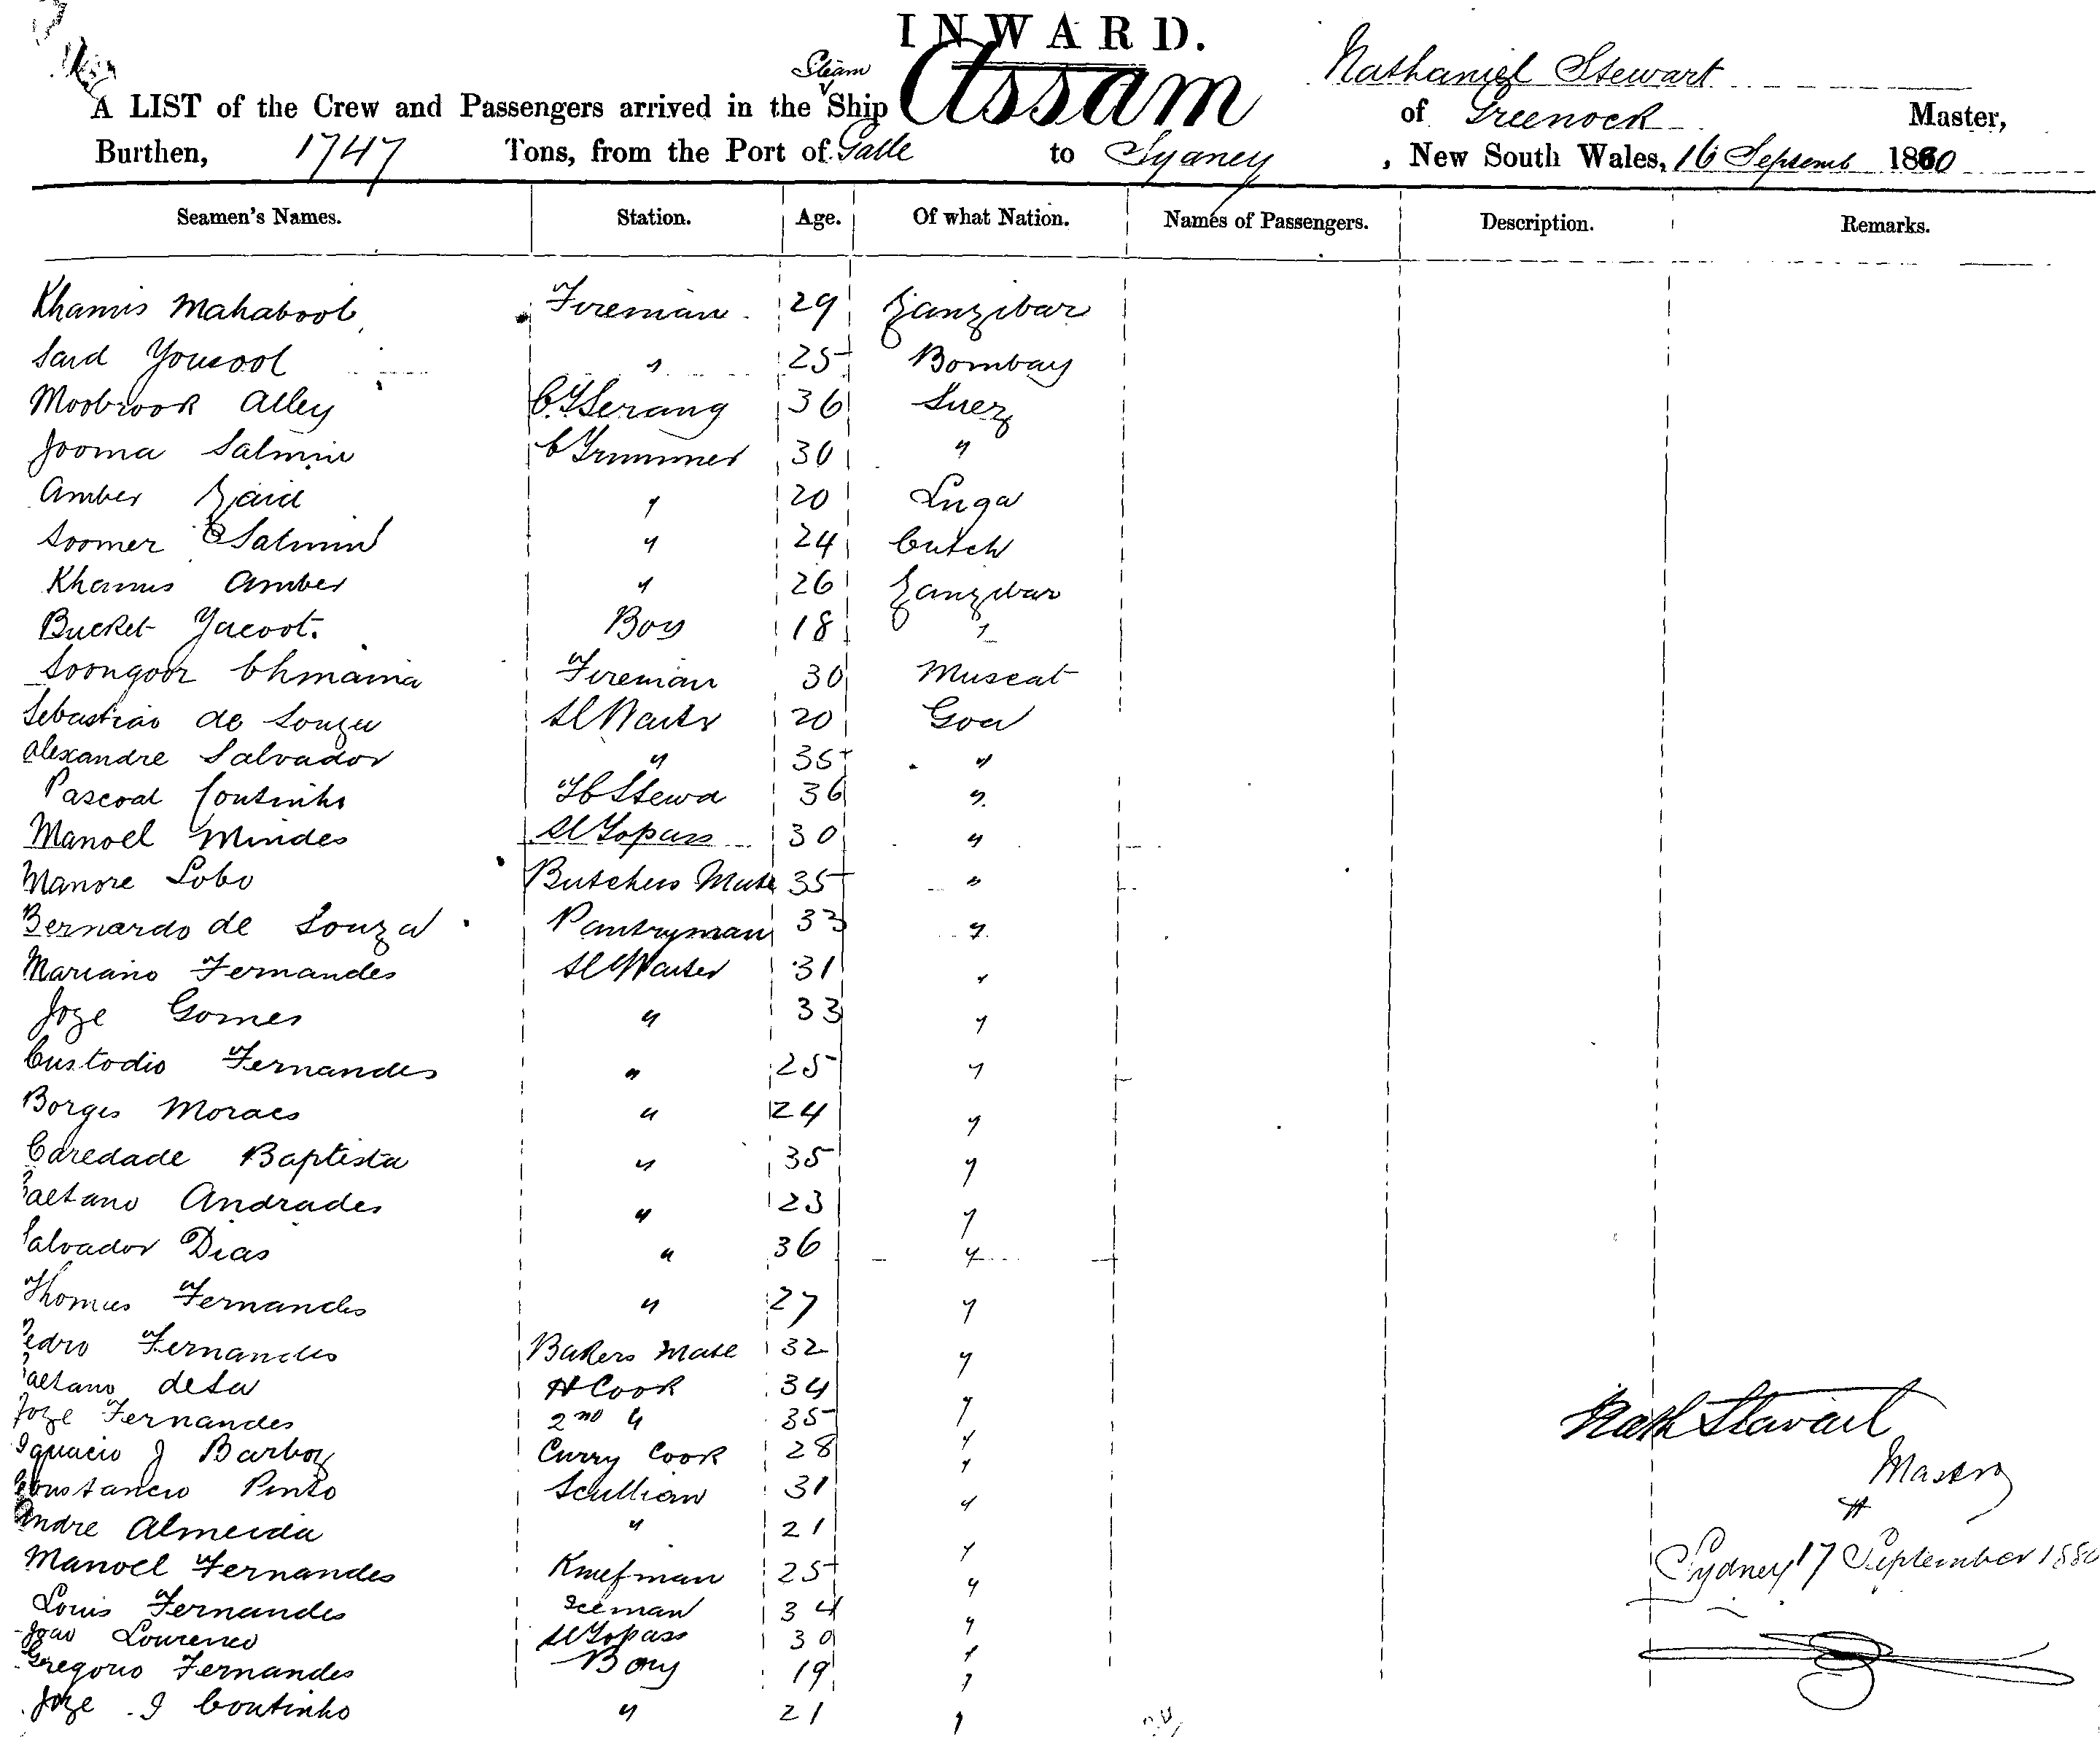 INWARD.
A LIST of the Crew and Passengers arrived in the Steam Ship Assam Nathaniel Stewart
of Greenock Master,
Burthen, 1747 Tons, from the Port of Galle to Sydney, New South Wales, 16 Septemb 1880
Seamen's Names. Station. Age. Of what Nation. Names of Passengers. Description. Remarks.
Khamis Mahaboob Fireman 29 Zanzibar
Said Yousoof " 25 Bombay
Moobrook Alley C.T. Serang 36 Suez
Jooma Salmin C Trimmer 30 "
Amber Zaid " 20 Luga
Soomer Salmin " 24 Cutch
Khamis Amber " 26 Zanzibar
Bucket Yacoot. Boy 18 "
Soongoor Fireman 30 Muscat
Sebastiao de Souza Sl Waiter 20 Goa
Alexandre Salvador " 35 "
Pascoal Coutinho Stewd 36 "
Manoel Mindes Sl Topass 30 "
Manore Lobo Butchers Mate 35 "
Bernardo de Souza Pantryman 33 "
Mariano Fernandes Sl Waiter 31 "
Joze Gomes " 33 "
Custodio Fernandes " 25 "
Borges Moraes " 24 "
Caredade Baptista " 35 "
Caetano Andrades " 23 "
Salvador Dias " 36 "
Thomas Fernandes " 27 "
Pedro Fernandes Bakers Mate 32 "
Caetano deSa Cook 34 "
Joze Fernandes 2nd " 35 "
Ignacio J Barboz Curry Cook 28 "
Constancio Pinto Scullian 31 "
Andre Almeida " 21 "
Manoel Fernandes Knifman 25 "
Louis Fernandes Iceman 34 "
Joao Lourenco Sl Topass 30 "
Gregorio Fernandes Boy 19 "
Joze I Coutinho " 21 "
Nath Stewart
Master
Sydney 17 September 1880